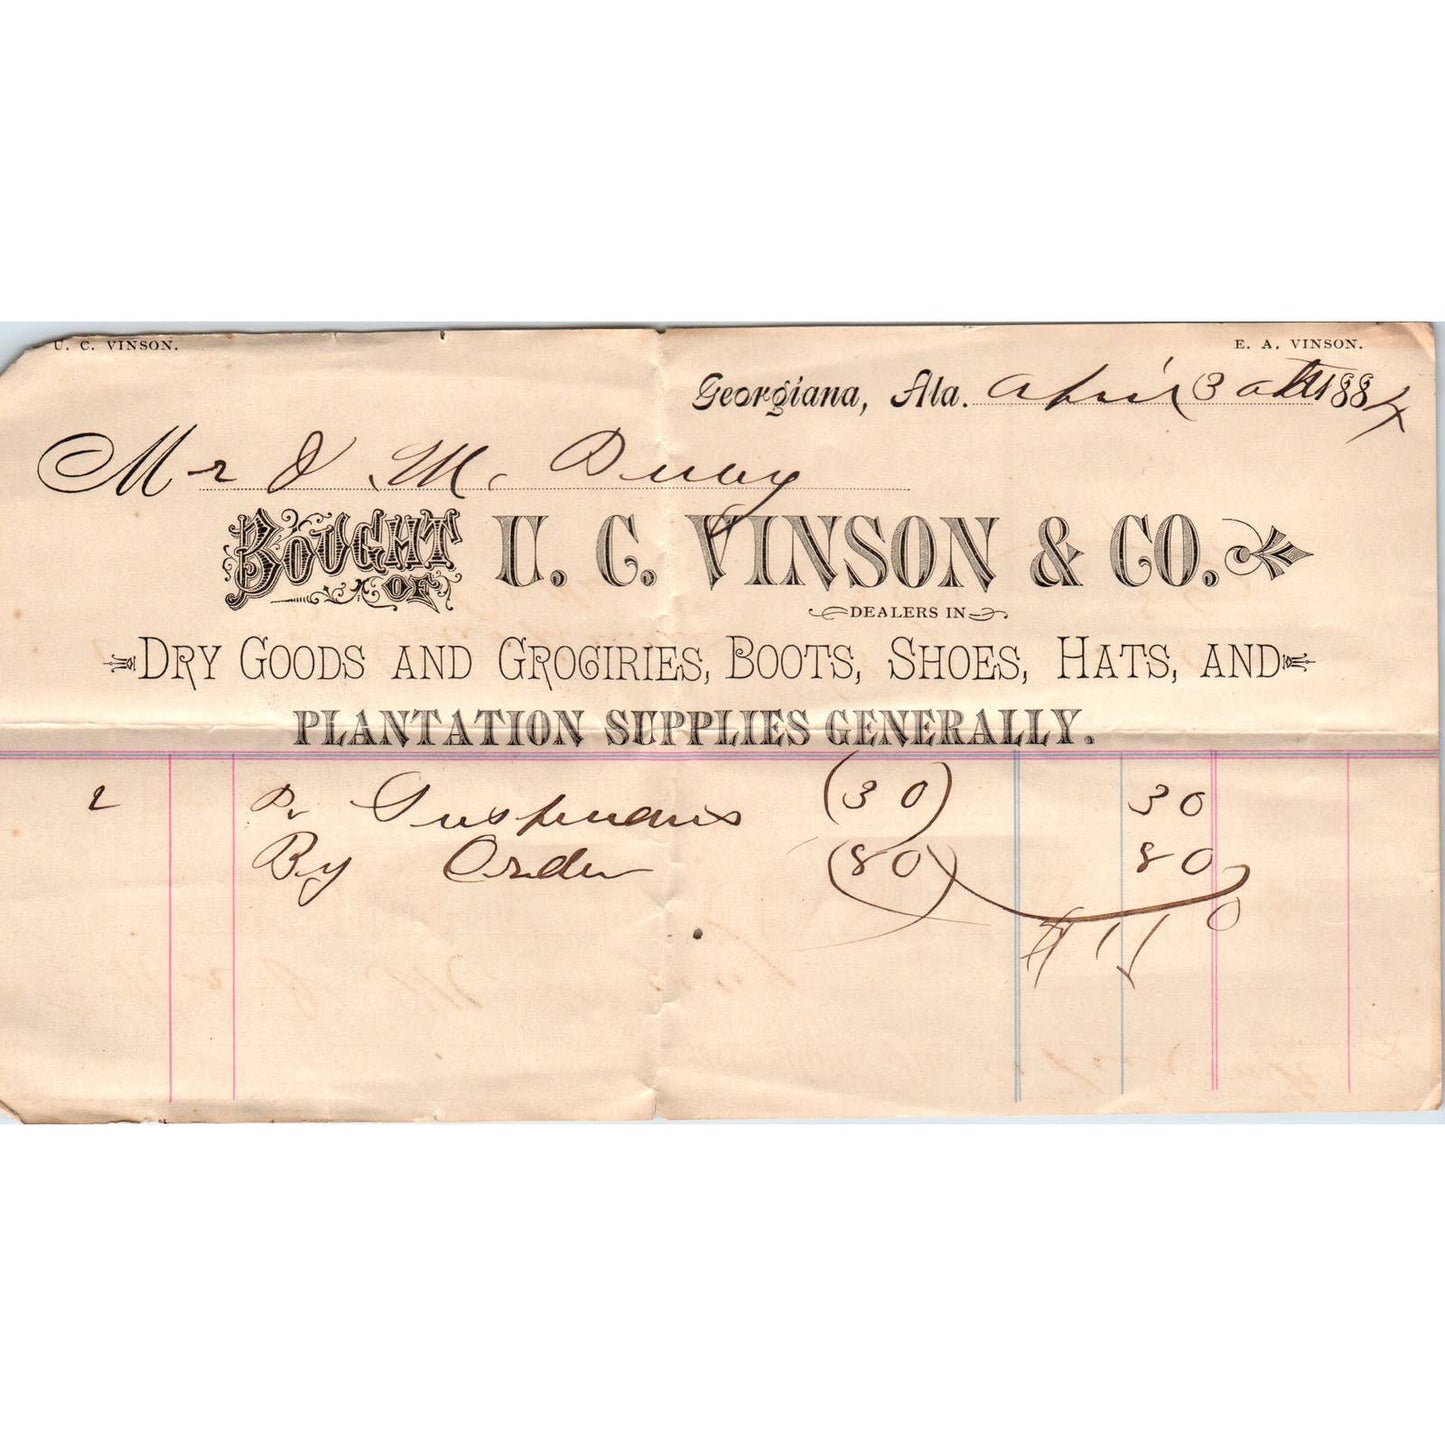 U. C. VINSON.
E. A. VINSON.
Georgiana, Ala. April 30th 1884
Mr J. M.
BOUGHT OF U. C. VINSON & CO.
DEALERS IN
DRY GOODS AND GROGIRIES, BOOTS, SHOES, HATS, AND
PLANTATION SUPPLIES GENERALLY.
2 Pr Suspenders (30) 30
By Order (80) 80
$ 1 10